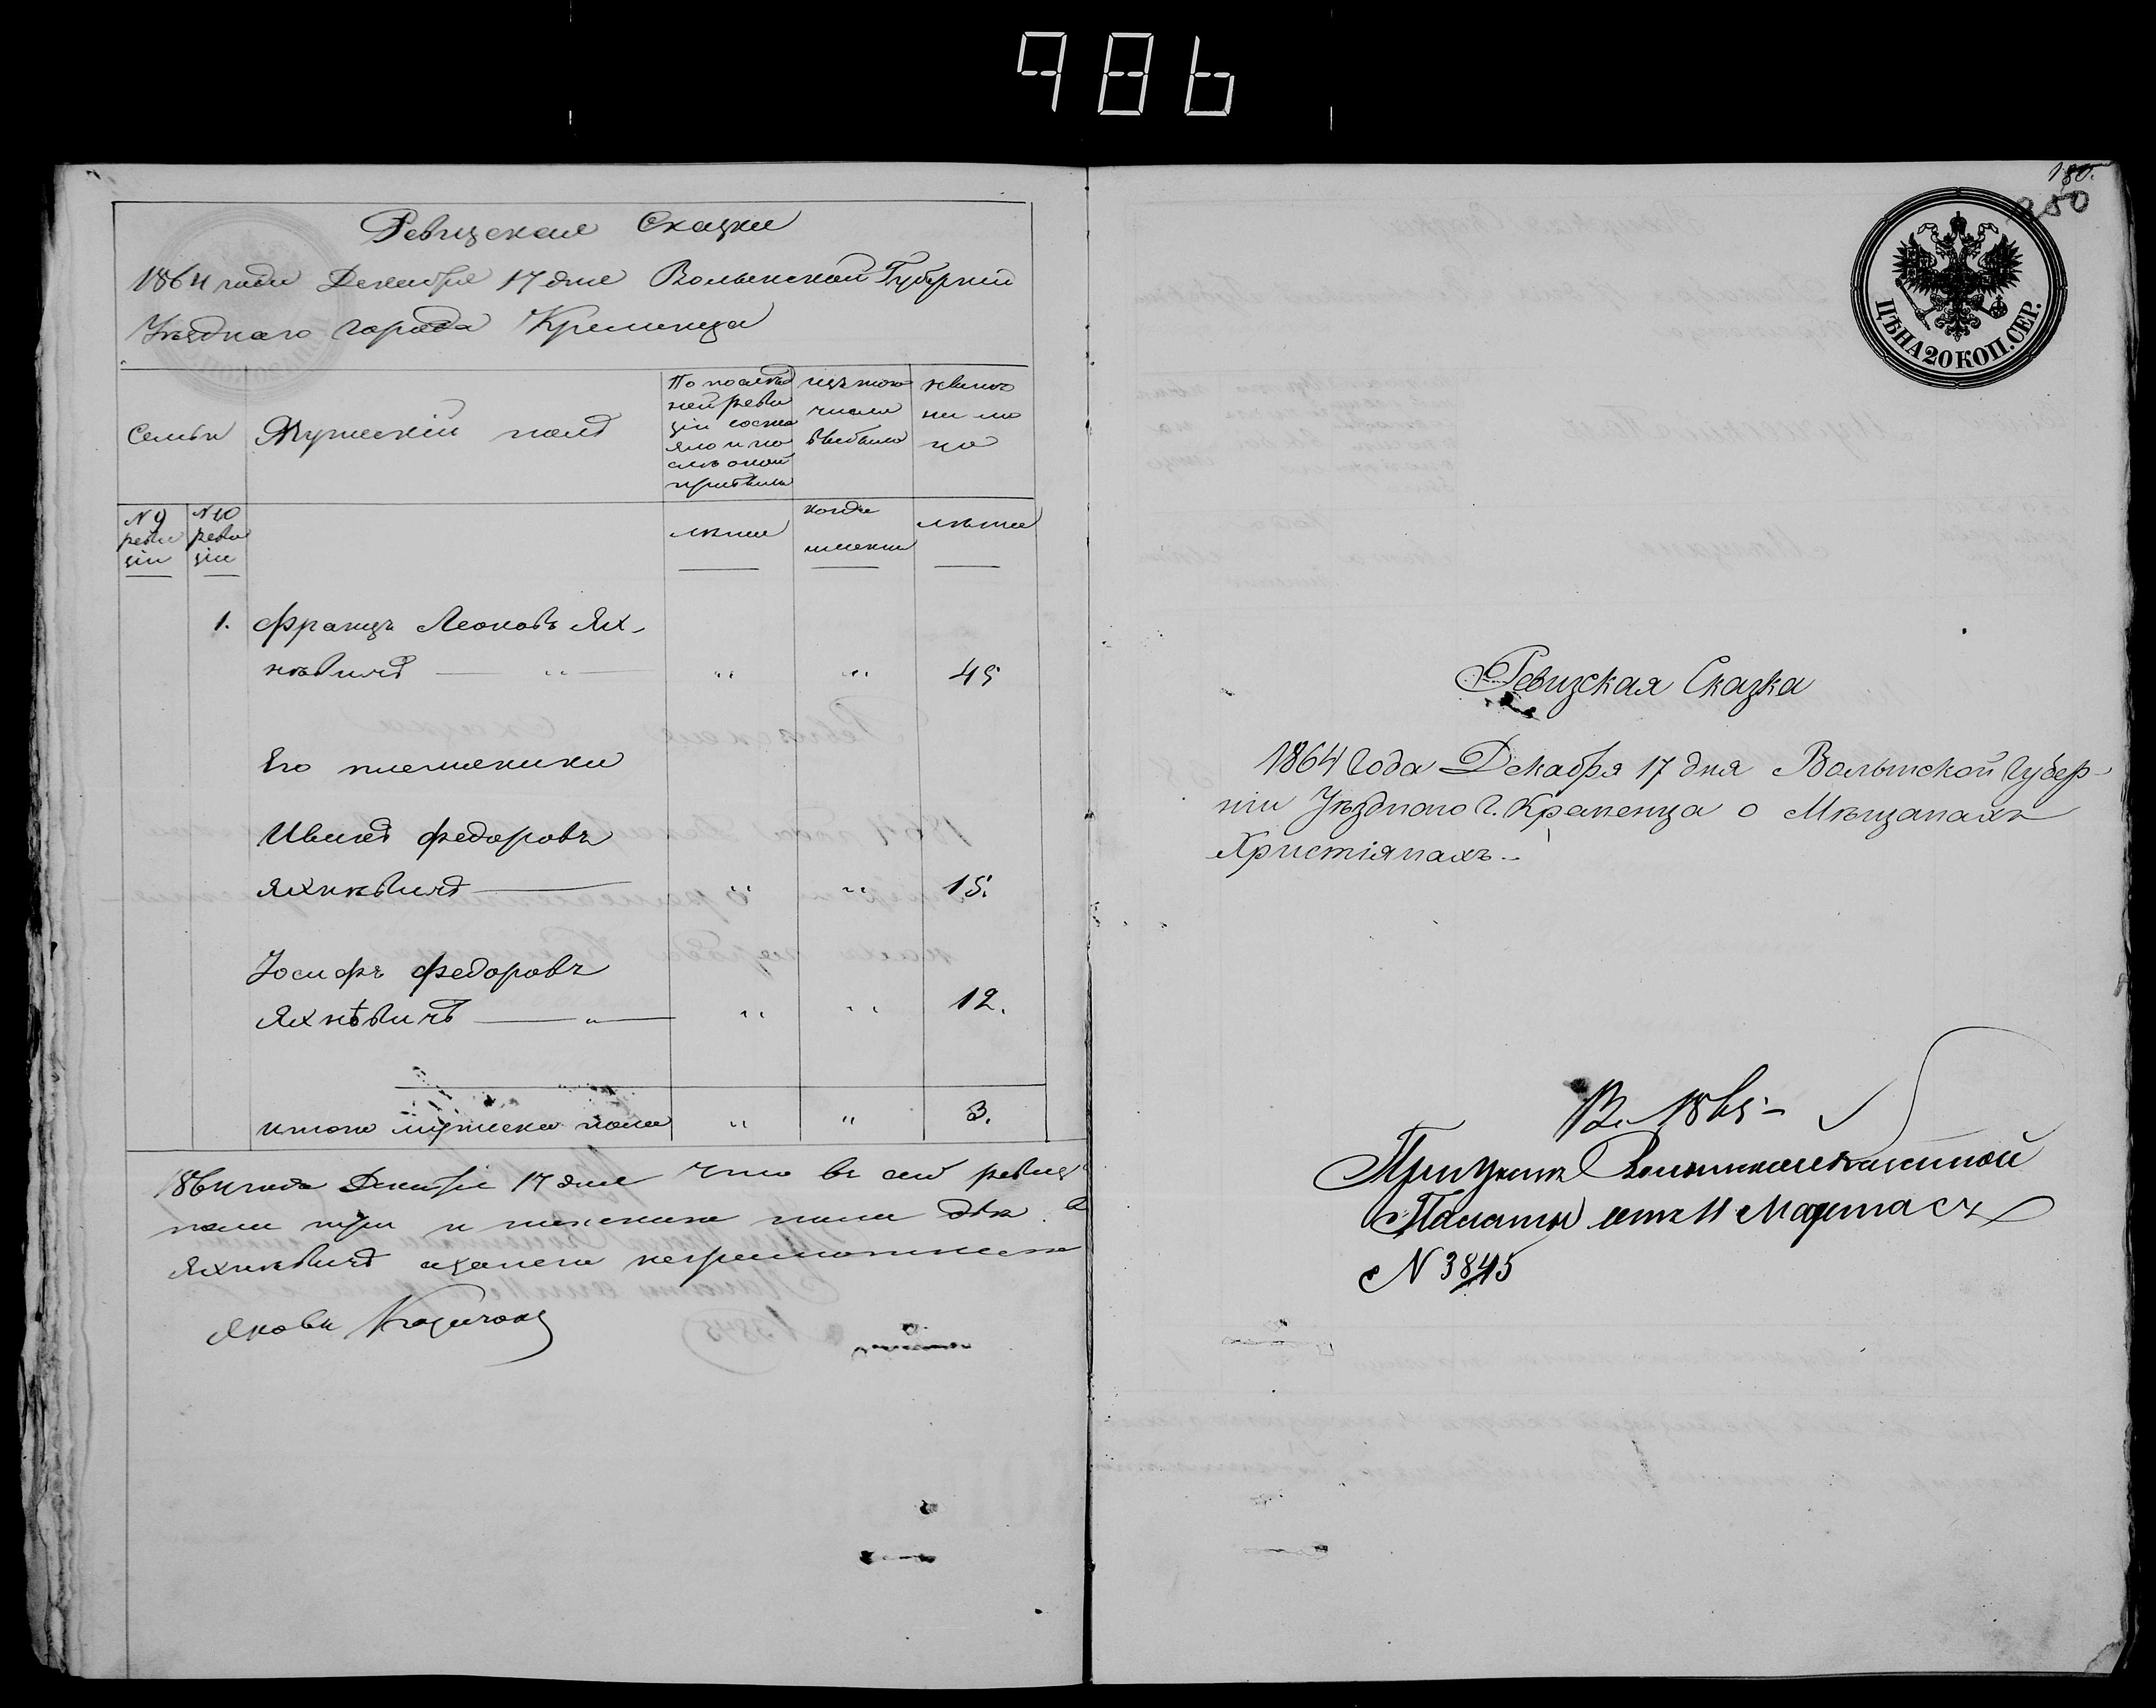 986
Ревизская Сказка
1864 года Декабря 17 дня Волынской Губернии
Уезднаго города Кременца
Семьи
Мужескій полъ
По послѣд
ней реви
зіи состо
яло и по
слѣ оной
прибыло
изъ того
числа
выбыло
нынѣ
на ли
цо
№ 9
реви
зіи
№ 10
реви
зіи
лѣта
когда
именно
лѣта
1. Францъ Леоновъ Ях-
нѣвичъ — " — " " 45
Его племеники
Иванъ Федоровъ
Яхнѣвичъ — " " 15.
Іосифъ Федоровъ
Яхнѣвичъ — " — " " 12.
итого мужеска пола " " 3.
1864 года Декабря 17 дня что въ сей ревиз
пола три и женскаго пола двѣ
Яхнѣвичъ а за него неграмотнаго
Яковъ
180.
250
ЦѢНА 20 КОП. СЕР.
Ревизская Сказка
1864 Года Декабря 17 дня Волынской Губер-
ніи Уѣзднаго г. Кременца о Мѣщанахъ
Христіянахъ.-
При Указѣ Волынской казенной
Палаты отъ 11 Марта съ
№ 3845